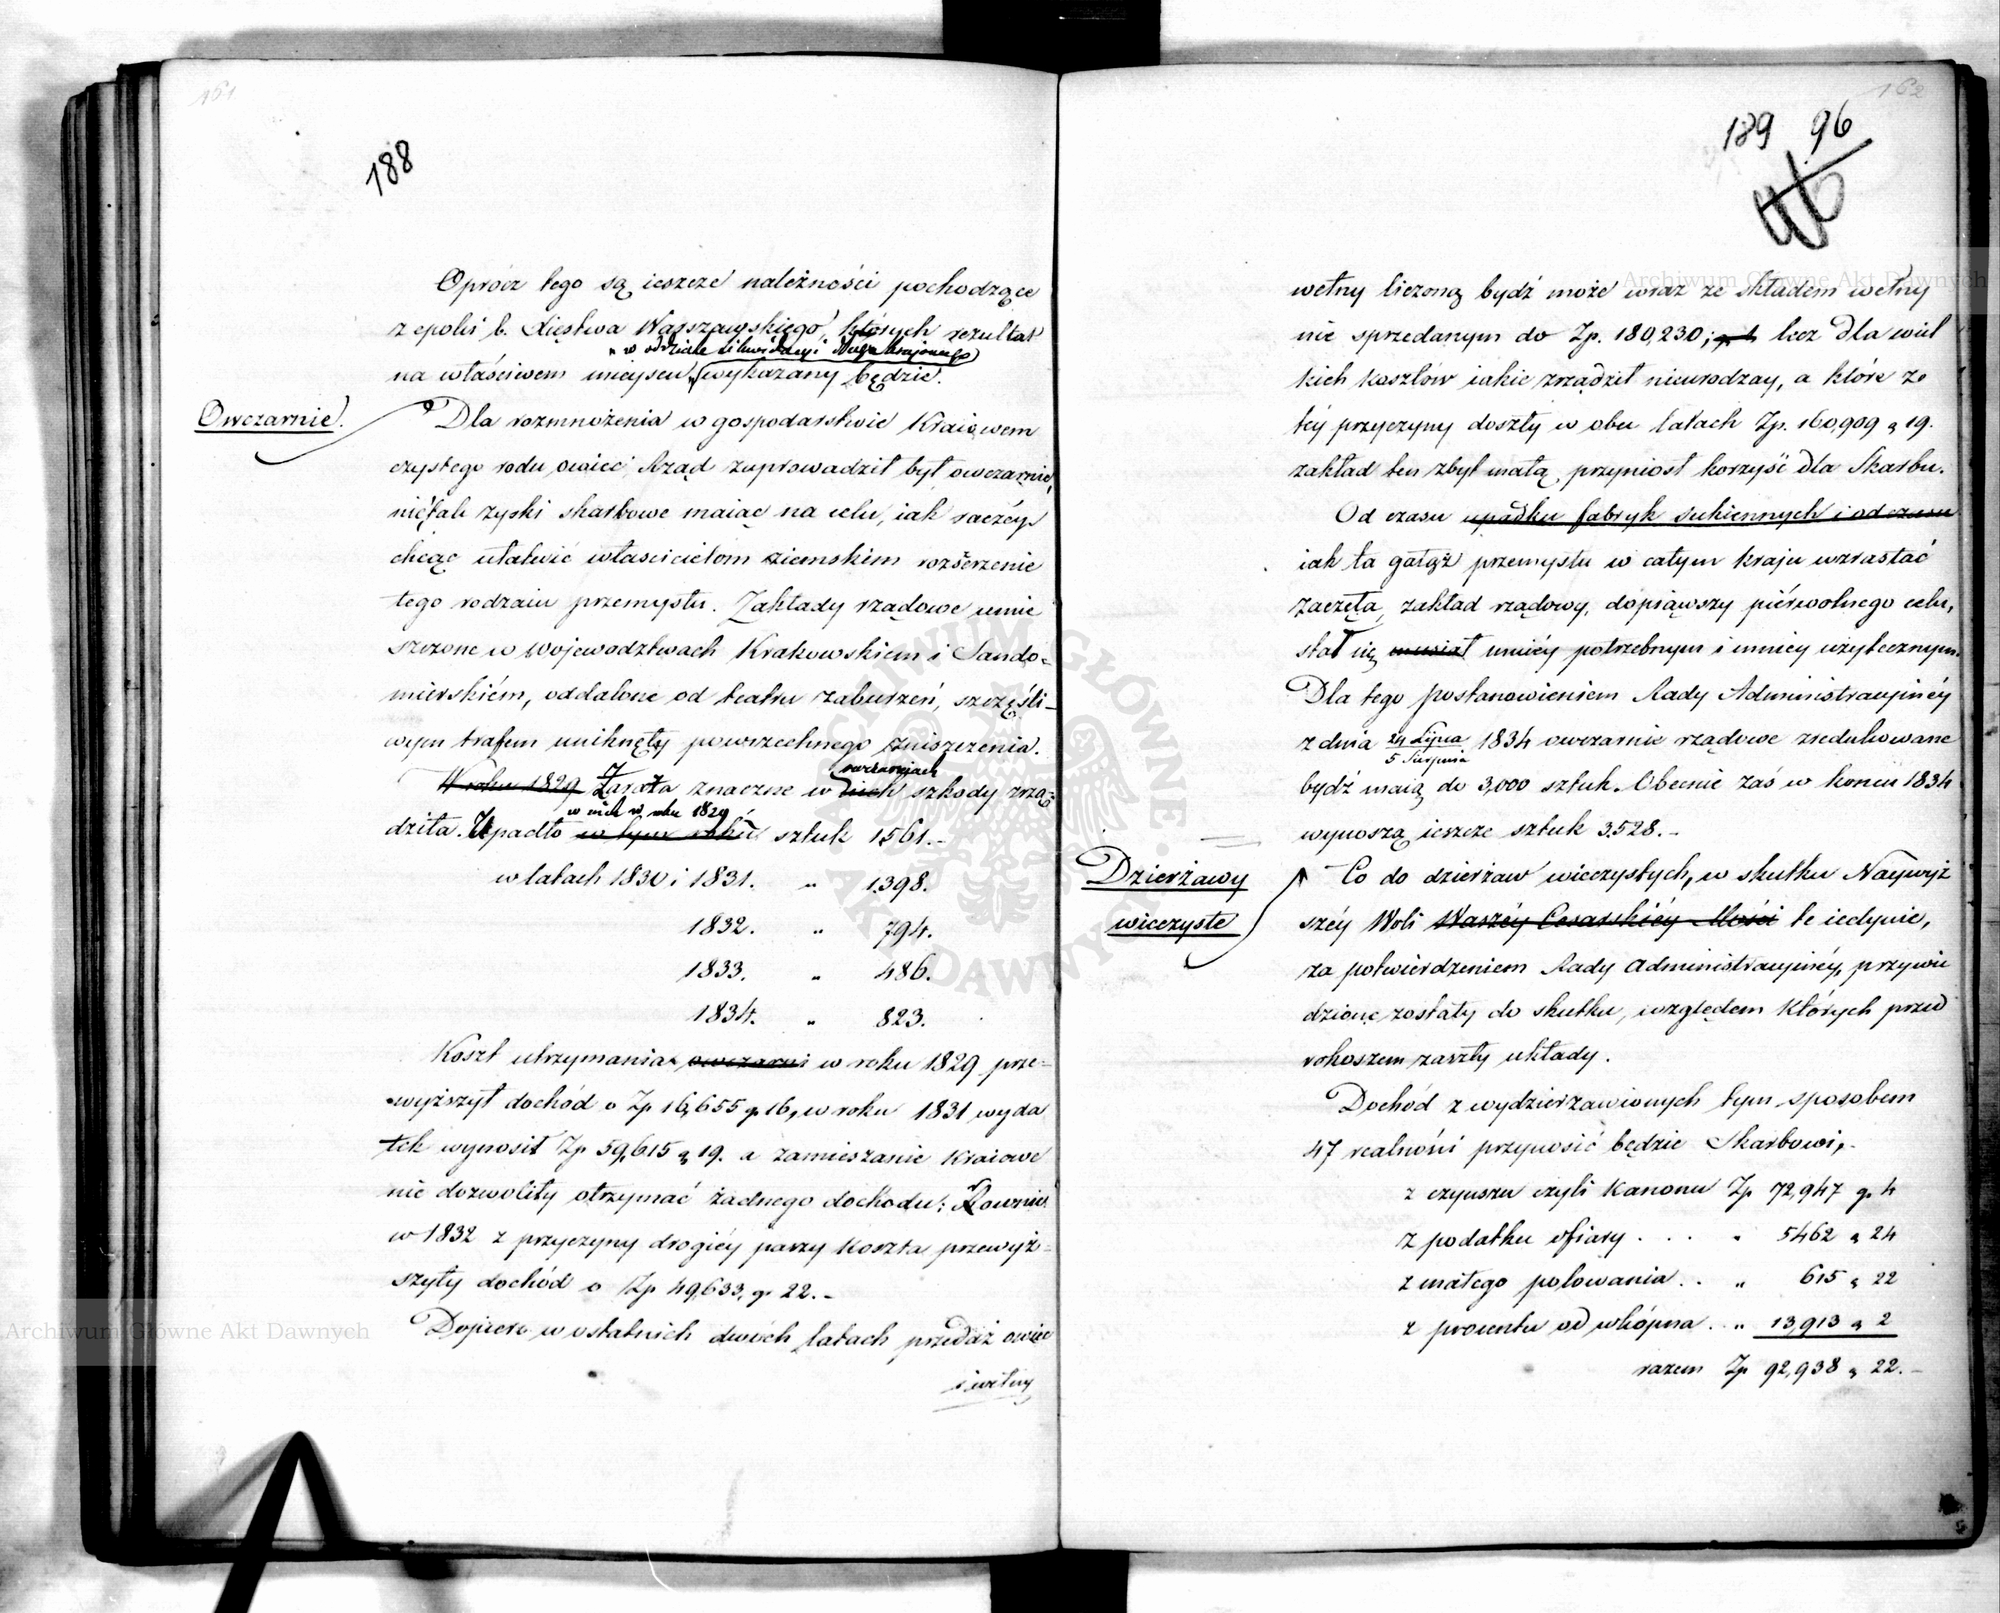 161
188
Oprócz tego są ieszcze należności pochodzące
z epoki b. Xięstwa Warszawskiego, których rezultat
w oddziale Likwidacyi długu krajowego
na właściwem mieyscu, wykazany będzie.
Owczarnie.
Dla rozmnożenia w gospodarstwie Kraiowem
czystego rodu owiec, Rząd zaprowadził był owczarnie,
nie tak zyski skarbowe maiąc na celu, iak raczéy
chcąc ułatwić właścicielom ziemskiem rozszerzenie
tego rodzaiu przemysłu. Zakłady rządowe umie
szczone w Wojewodztwach Krakowskiem i Sando-
mierskiém, oddalone od teatru zaburzeń, szczęśli-
wym trafem uniknęły powszechnego zniszczenia.
owczarniach
W roku 1829 Zaraza znaczne w nich szkody zrzą-
w nich w roku 1829
dziła. Upadło w tym roku sztuk 1561.-
w latach 1830 i 1831. " 1,398.
1832. " 794.
1833. " 486.
1834. " 823.
Koszt utrzymania owczarni w roku 1829 prze-
wyższył dochód o Zp 16,655 g 16, w roku 1831 wyda
tek wynosił Zp 59,615 g 19. a zamieszanie Kraiowe
nie dozwoliły otrzymać żadnego dochodu; Rownie
w 1832 z przyczyny drogiéy paszy koszta przewyż-
szyły dochód o Zp 49,633, gr 22.-
Dopiero w ostatnich dwóch latach przedaż owiec
i wełny
162
189 96
wełny liczoną bydź może wraz ze składem wełny
nie sprzedanym do Zp. 180,230; lecz dla wiel
kich kosztów iakie zrządził nieurodzay, a które ze
téy przyczyny doszły w obu latach Zp. 160,909 g 19.
zakład ten zbyt małą przyniosł korzyść dla Skarbu.
Od czasu upadku fabryk sukiennych i od czasu
iak ta gałąź przemysłu w całym kraju wzrastać
zaczęła, zakład rządowy, dopiąwszy piérwotnego celu,
stał się musiał mniéy potrzebnym i mniey użytecznym.
Dla tego postanowieniem Rady Administracyinéy
z dnia 24 Lipca 1834 owczarnie rządowe zredukowane
5 Sierpnia
bydź maią do 3,000 sztuk. Obecnie zaś w końcu 1834
wynoszą ieszcze sztuk 3.528.-
Dzierżawy
wieczyste
Co do dzierżaw wieczystych, w skutku Naywyż
széy Woli Waszéy Cesarskiéy Mości te iedynie,
za potwierdzeniem Rady Administracyinéy, przywie
dzione zostały do skutku, względem których przed
rokoszem zaszły układy.
Dochód z wydzierżawionych tym sposobem
47 realności przynosić będzie Skarbowi,-
z czynszu czyli Kanonu Zp 72,947 g. 4
z podatku ofiary . . . " 5462 " 24
z małego polowania . . " 615 " 22
z procentu od wkópna . " 13,913 " 2
razem Zp 92,938 " 22.-
Archiwum Główne Akt Dawnych
Archiwum Główne Akt Dawnych
ARCHIWUM GŁÓWNE AKT DAWNYCH